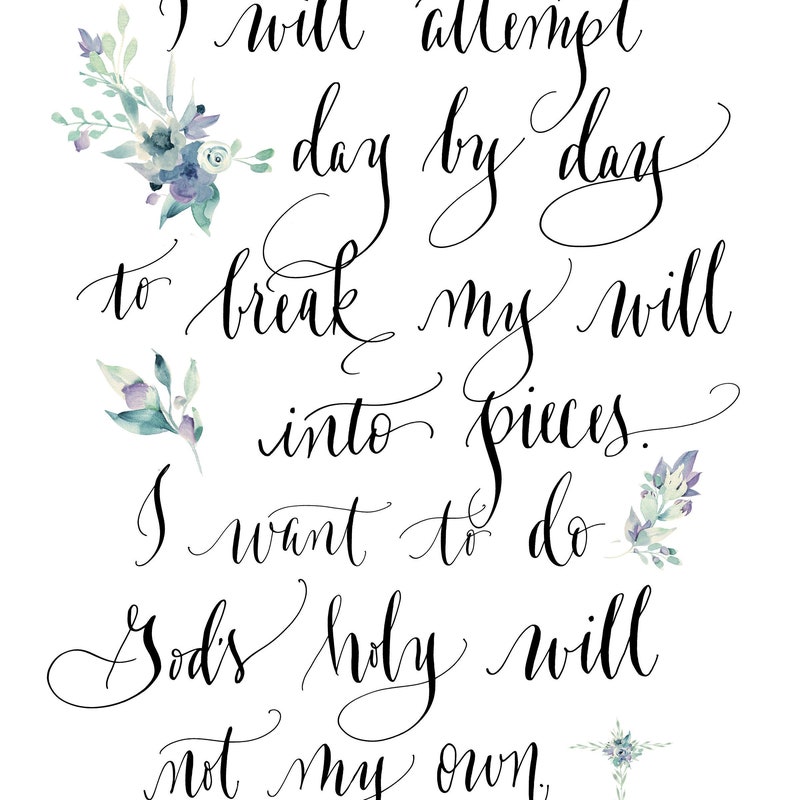 I will attempt
day by day
to break my will
into pieces.
I want to do
God's holy will
not my own.,